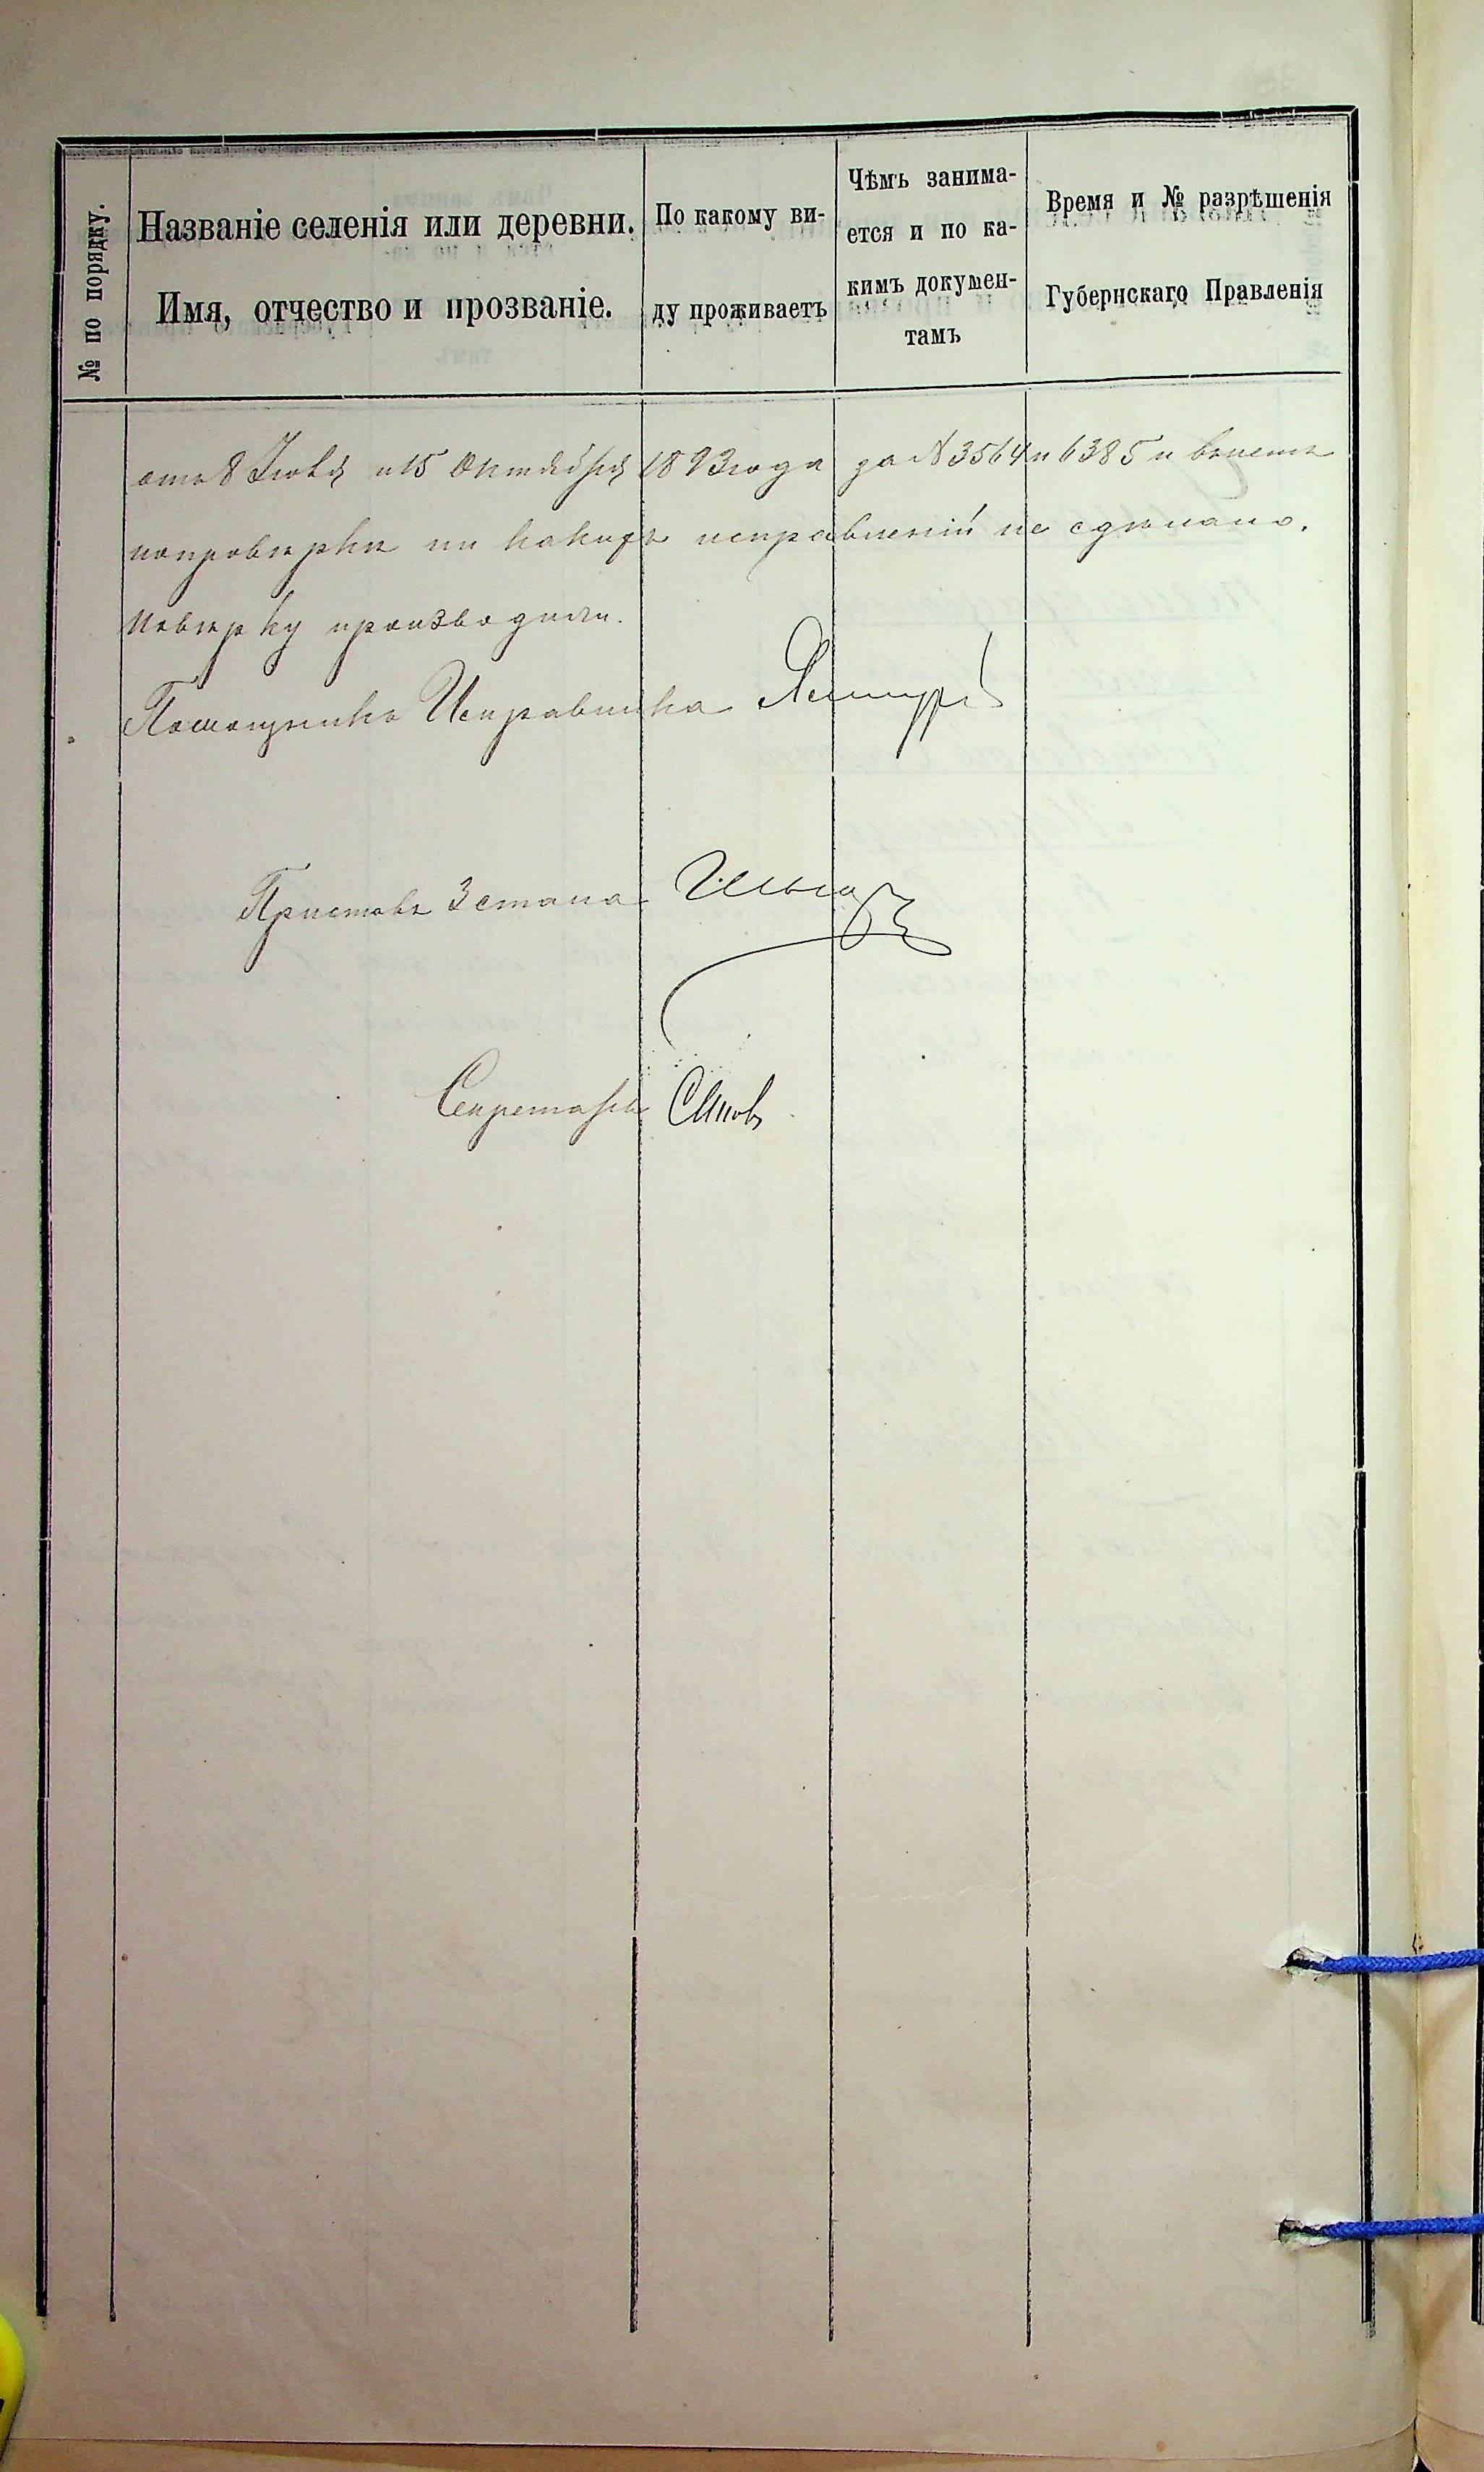 № по порядку.
Названіе селенія или деревни.
Имя, отчество и прозваніе.
По какому ви-
ду проживаетъ
Чѣмъ занима-
ется и по ка-
кимъ докумен-
тамъ
Время и № разрѣшенія
Губернскаго Правленія
отъ 8 Іюля и 15 Октября 1893 года за № 3564 и 6385 и
попровѣрки ни какихъ исправленій не сдѣлано.
Повѣрку производили.
Помощникъ Исправника
Приставъ 3 стана
Секретарь